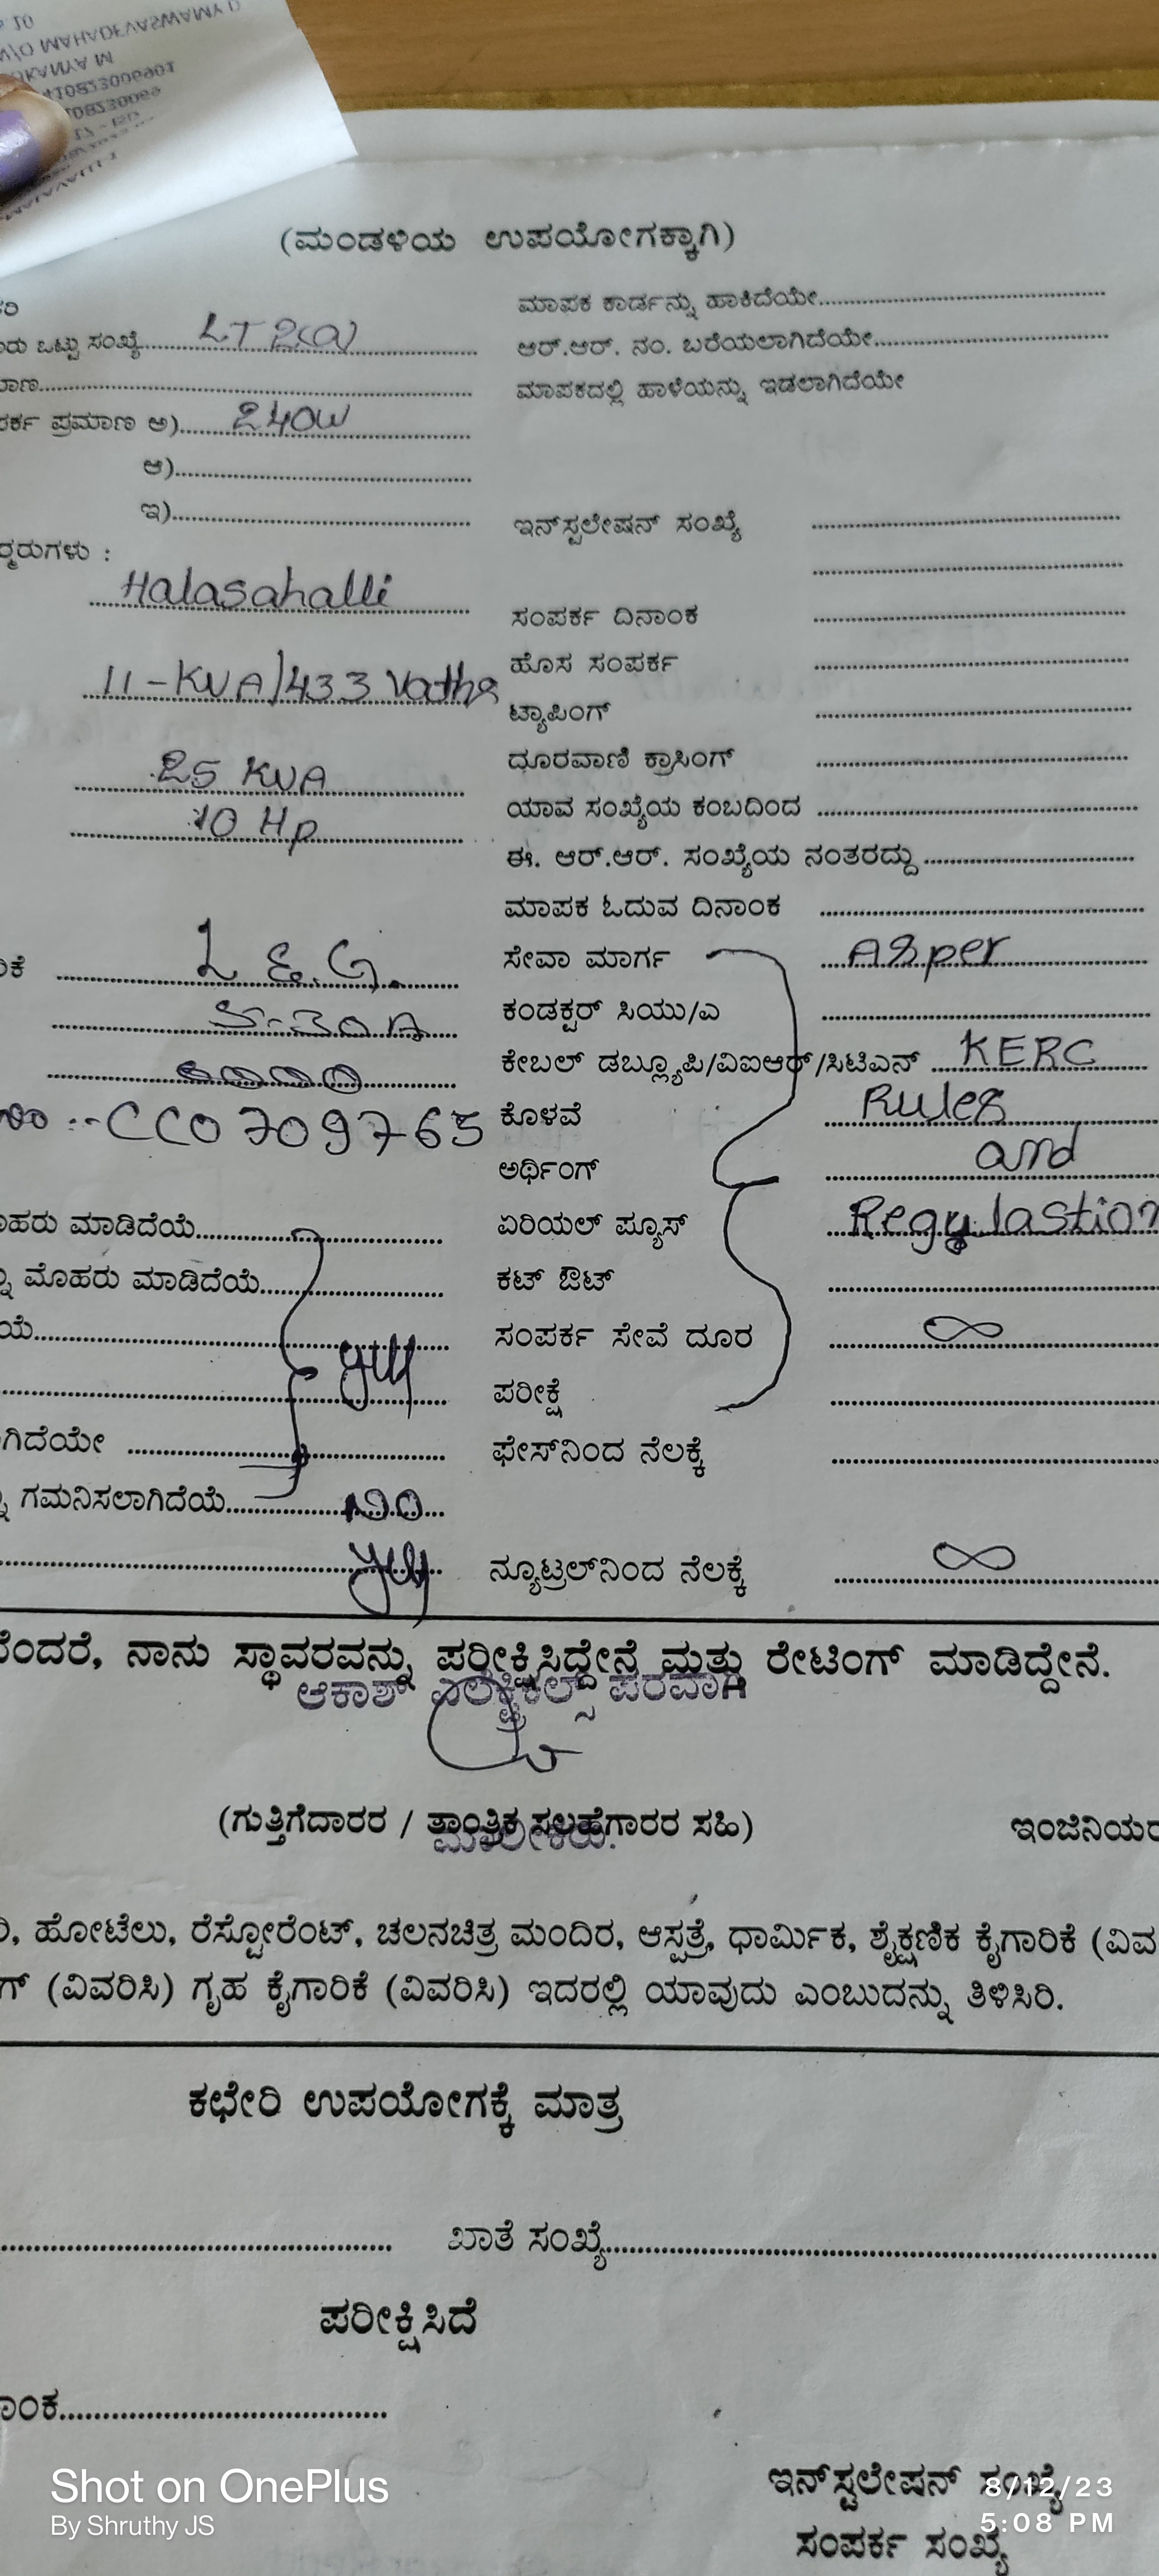 W/O MAHADEVASWAMY D
(ಮಂಡಳಿಯ ಉಪಯೋಗಕ್ಕಾಗಿ)
ಒಟ್ಟು ಸಂಖ್ಯೆ
ಮಾಪಕ ಕಾರ್ಡನ್ನು ಹಾಕಿದೆಯೇ
ಆರ್.ಆರ್. ನಂ. ಬರೆಯಲಾಗಿದೆಯೇ
ಮಾಪಕದಲ್ಲಿ ಹಾಳೆಯನ್ನು ಇಡಲಾಗಿದೆಯೇ
ಪ್ರಮಾಣ ಅ) 240W
ಆ)
ಇ)
ಇನ್‌ಸ್ಟಲೇಷನ್ ಸಂಖ್ಯೆ
Halasahalli
ಸಂಪರ್ಕ ದಿನಾಂಕ
ಹೊಸ ಸಂಪರ್ಕ
11-KVA/433
ಟ್ಯಾಪಿಂಗ್
25 KVA
ದೂರವಾಣಿ ಕ್ರಾಸಿಂಗ್
10 Hp
ಯಾವ ಸಂಖ್ಯೆಯ ಕಂಬದಿಂದ
ಈ. ಆರ್.ಆರ್. ಸಂಖ್ಯೆಯ ನಂತರದ್ದು
ಮಾಪಕ ಓದುವ ದಿನಾಂಕ
L & G.
ಸೇವಾ ಮಾರ್ಗ Asper
5-30A
ಕಂಡಕ್ಟರ್ ಸಿಯು/ಎ
ಕೇಬಲ್ ಡಬ್ಲ್ಯೂಪಿ/ವಿಐಆರ್/ಸಿಟಿಎನ್ KERC
CC0709765
ಕೊಳವೆ Rules
ಅರ್ಥಿಂಗ್ and
ಮಾಡಿದೆಯೆ
ಏರಿಯಲ್ ಪ್ಯೂಸ್ Regulastion
ಮೊಹರು ಮಾಡಿದೆಯೆ
ಕಟ್ ಔಟ್
ಸಂಪರ್ಕ ಸೇವೆ ದೂರ ∞
ಪರೀಕ್ಷೆ
ಫೇಸ್‌ನಿಂದ ನೆಲಕ್ಕೆ
ಗಮನಿಸಲಾಗಿದೆಯೆ
ನ್ಯೂಟ್ರಲ್‌ನಿಂದ ನೆಲಕ್ಕೆ ∞
ನಾನು ಸ್ಥಾವರವನ್ನು ಪರೀಕ್ಷಿಸಿದ್ದೇನೆ ಮತ್ತು ರೇಟಿಂಗ್ ಮಾಡಿದ್ದೇನೆ.
ಆಕಾಶ್ ಎಲೆಕ್ಟ್ರಿಕಲ್ಸ್ ಪರವಾಗಿ
(ಗುತ್ತಿಗೆದಾರರ / ತಾಂತ್ರಿಕ ಸಲಹೆಗಾರರ ಸಹಿ)
ಮಾಲೀಕರು.
ಹೋಟೆಲು, ರೆಸ್ಟೋರೆಂಟ್, ಚಲನಚಿತ್ರ ಮಂದಿರ, ಆಸ್ಪತ್ರೆ, ಧಾರ್ಮಿಕ, ಶೈಕ್ಷಣಿಕ ಕೈಗಾರಿಕೆ
(ವಿವರಿಸಿ) ಗೃಹ ಕೈಗಾರಿಕೆ (ವಿವರಿಸಿ) ಇದರಲ್ಲಿ ಯಾವುದು ಎಂಬುದನ್ನು ತಿಳಿಸಿರಿ.
ಕಛೇರಿ ಉಪಯೋಗಕ್ಕೆ ಮಾತ್ರ
ಖಾತೆ ಸಂಖ್ಯೆ
ಪರೀಕ್ಷಿಸಿದೆ
ಇನ್‌ಸ್ಟಲೇಷನ್ ಸಂಖ್ಯೆ
ಸಂಪರ್ಕ ಸಂಖ್ಯೆ
Shot on OnePlus
By Shruthy JS
8/12/23
5:08 PM